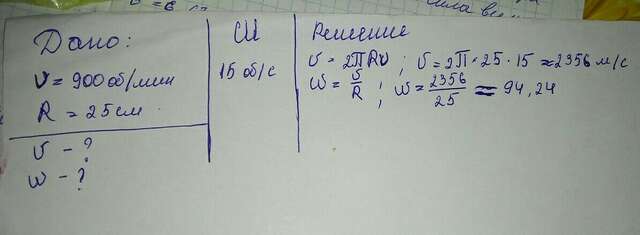 Дано:
ν = 900 об/мин
R = 25 см
υ - ?
ω - ?
СИ
15 об/с
Решение
υ = 2πRν ; υ = 2π · 25 · 15 ≈ 2356 м/с
ω = υ/R ; ω = 2356/25 = 94,24